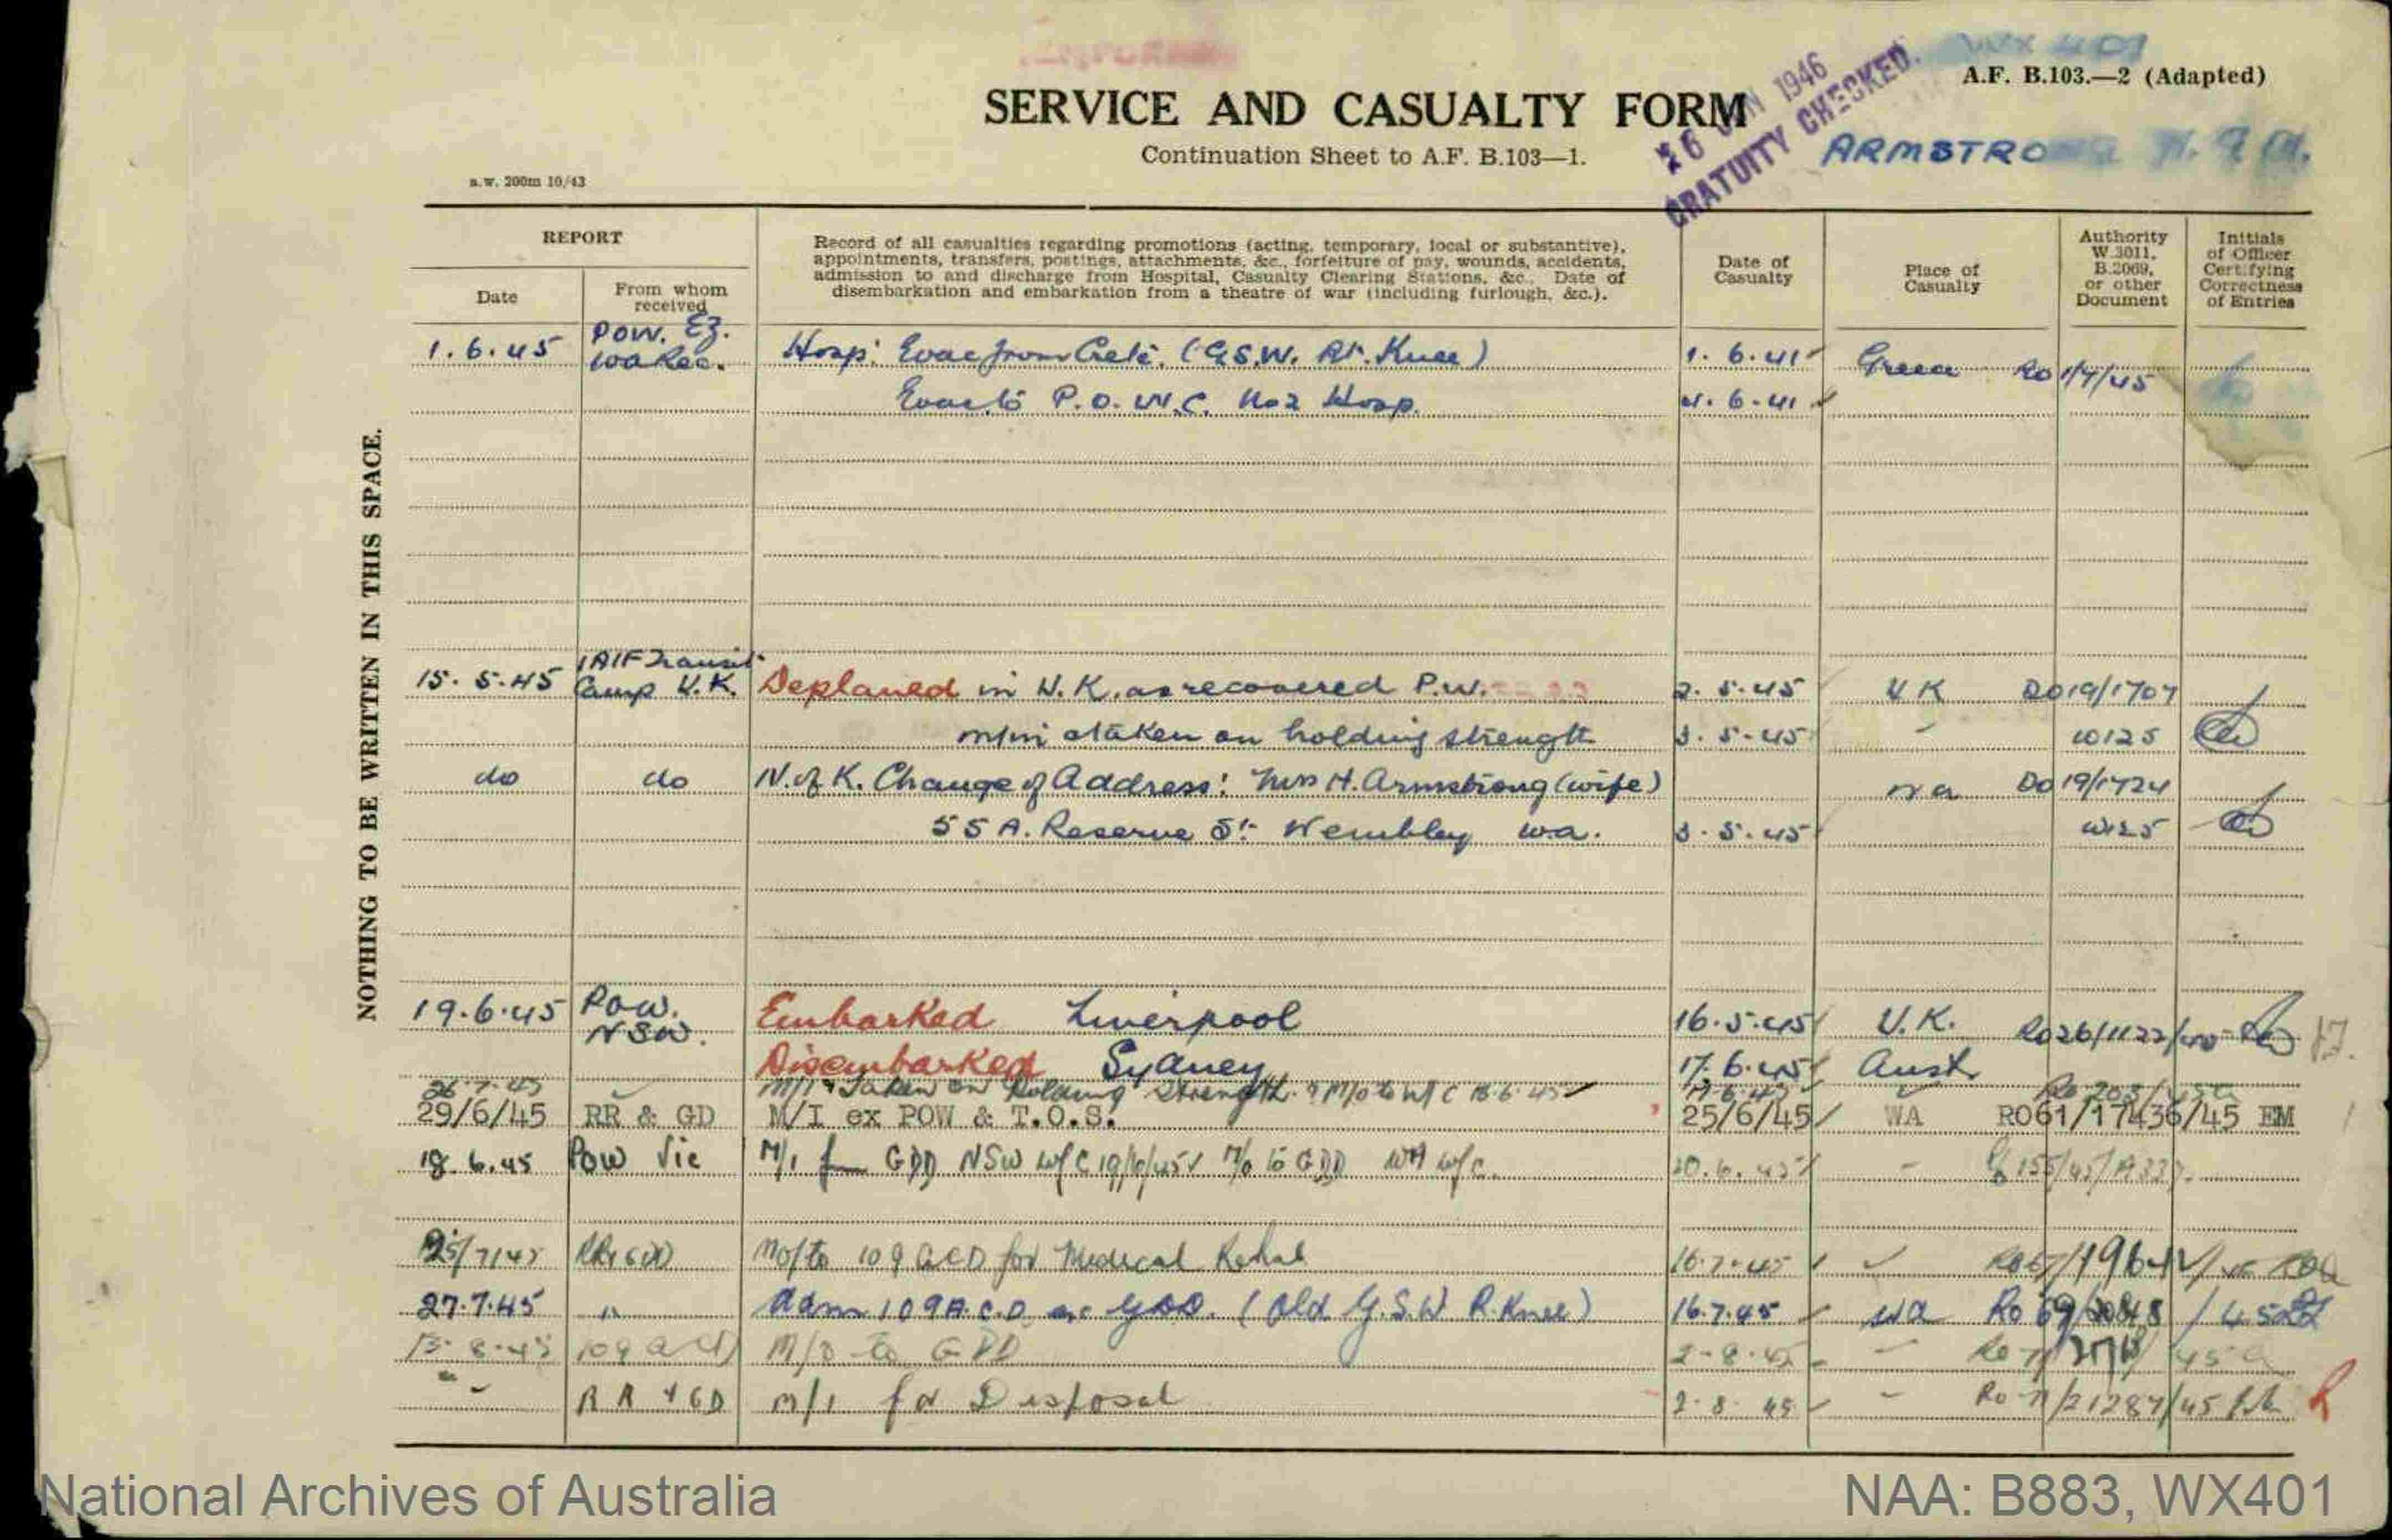 WX 401
A.F. B.103.—2 (Adapted)
SERVICE AND CASUALTY FORM
Continuation Sheet to A.F. B.103—1.
1946
GRATUITY CHECKED.
ARMSTRONG
s.w. 200m 10/43
NOTHING TO BE WRITTEN IN THIS SPACE.
REPORT
Date
From whom received
Record of all casualties regarding promotions (acting, temporary, local or substantive),
appointments, transfers, postings, attachments, &c., forfeiture of pay, wounds, accidents,
admission to and discharge from Hospital, Casualty Clearing Stations, &c. Date of
disembarkation and embarkation from a theatre of war (including furlough, &c.).
Date of Casualty
Place of Casualty
Authority W.3011, B.2069, or other Document
Initials of Officer Certifying Correctness of Entries
1.6.45 POW. Ez. WA Rec. Hosp: Evac from Crete. (G.S.W. Rt. Knee) 1.6.41 Greece RO 1/7/45
Evac to P.O.W.C. No 2 Hosp. 4.6.41
15.5.45 AIF Transit Camp U.K. Deplaned in U.K. as recovered P.W. 2.5.45 UK DO19/1707
m/in & taken on holding strength 3.5.45 W125
do do N. of K. Change of Address: Mrs H. Armstrong (wife) WA DO 19/1724
55A. Reserve St. Wembley WA. 3.5.45 W125
19.6.45 POW. NSW. Embarked Liverpool 16.5.45 U.K.
Disembarked Sydney 17.6.45 Aust
26.7.45 M/I & Taken on Holding Strength
29/6/45 RR & GD M/I ex POW & T.O.S. 25/6/45 WA RO61/17436/45 EM
18.6.45 POW Vic M/I GDD NSW W/C 19/6/45 M/o to GDD WA W/C. 20.6.45
25/7/45 RR & GD M/o to 109 ACD for Medical Rehab 16.7.45
27.7.45 " Adm 109 A.C.D. GDD. (Old G.S.W. R. Knee) 16.7.45 WA
13.8.45 109 ACD M/O to GDD 2.8.45
RR & GD M/I for Disposal 2.8.45 RO 71/21287/45
National Archives of Australia
NAA: B883, WX401